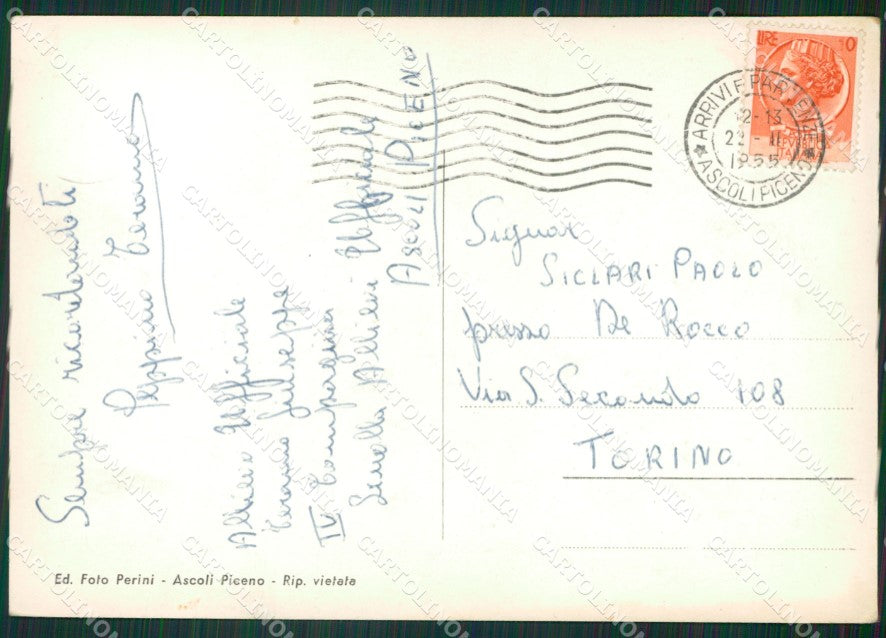 Sempre ricordandoti
Peppino Teramo
Allievo Ufficiale
Teramo Giuseppe
IV Compagnia
Scuola Allievi Ufficiale
ASCOLI PICENO
LIRE 10
ARRIVI E PARTENZE
12-13
22 - II
1955
ASCOLI PICENO
Signor
SICLARI PAOLO
presso De Rocco
Via S. Secondo 108
TORINO
Ed. Foto Perini - Ascoli Piceno - Rip. vietata
CARTOLINOMANIA